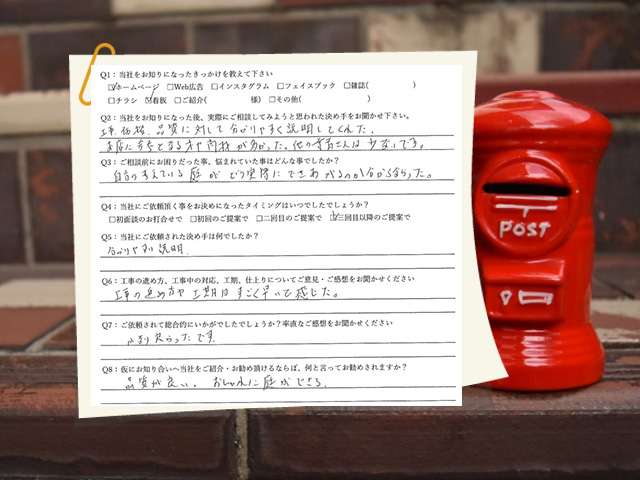 Q1：当社をお知りになったきっかけを教えて下さい
☑ホームページ □Web広告 □インスタグラム □フェイスブック □雑誌（ ）
□チラシ ☑看板 □ご紹介( 様) □その他( )
Q2：当社をお知りになった後、実際にご相談してみようと思われた決め手をお聞かせ下さい。
工事、価格、品質に対して分かりやすく説明してくれた。
Q3：ご相談前にお困りだった事、悩まれていた事はどんな事でしたか？
自分の考えている庭がどう実際にできあがるのか分からなかった。
Q4：当社にご依頼頂く事をお決めになったタイミングはいつでしたでしょうか？
□初面談のお打合せで □初回のご提案で □二回目のご提案で ☑三回目以降のご提案で
Q5：当社にご依頼された決め手は何でしたか？
分かりやすい説明
Q6：工事の進め方、工事中の対応、工期、仕上りについてご意見・ご感想をお聞かせください
工事の進め方や工期はすごく早いと感じた。
Q7：ご依頼されて総合的にいかがでしたでしょうか？率直なご感想をお聞かせください
です
Q8：仮にお知り合いへ当社をご紹介・お勧め頂けるならば、何と言ってお勧めされますか？
品質が良い。 おしゃれに庭ができる。
POST